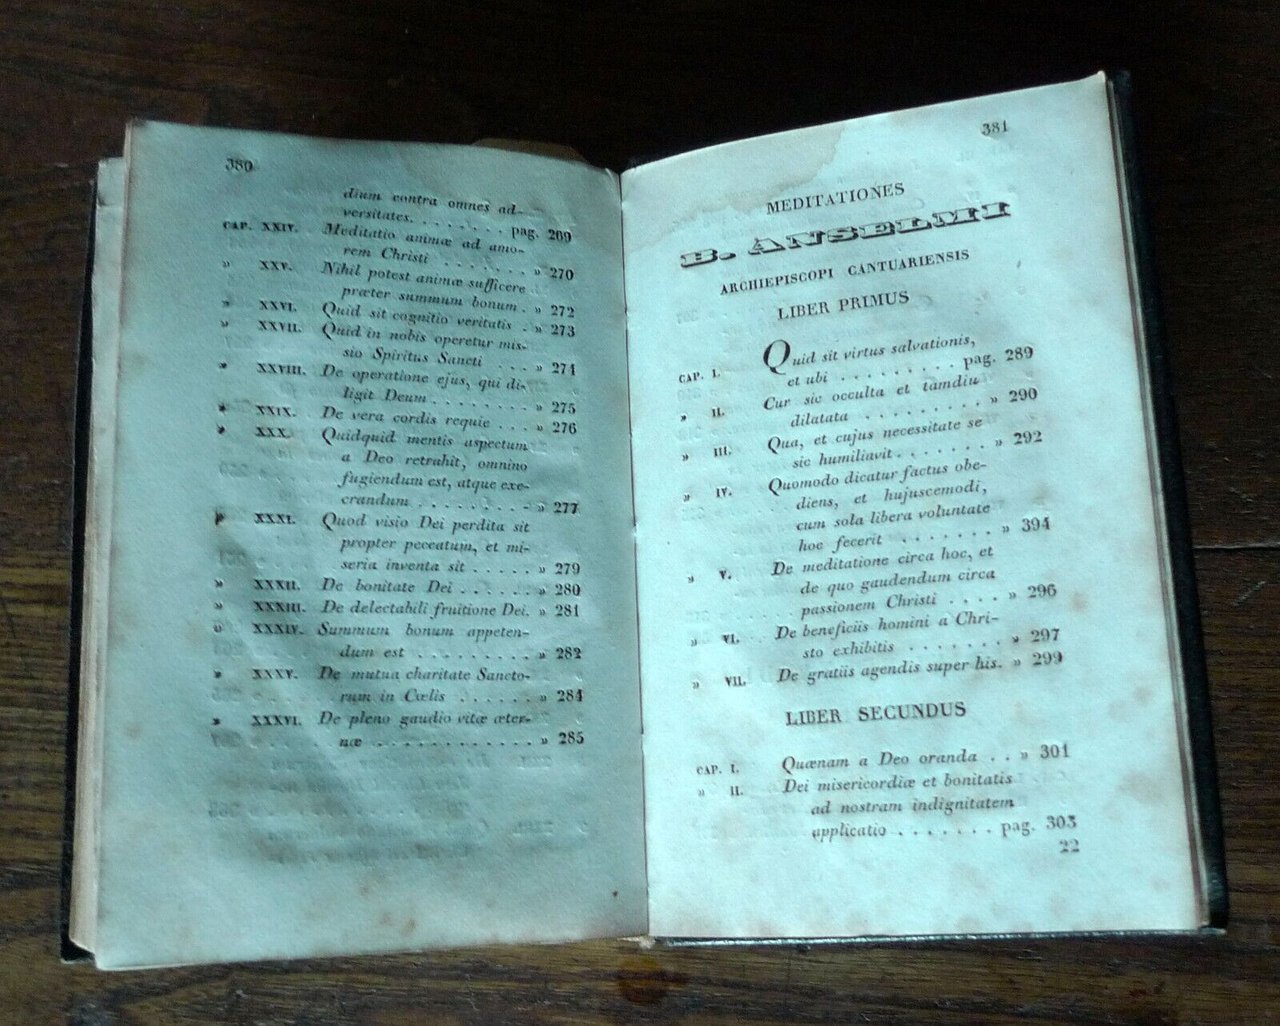 380
dium contra omnes ad-
versitates. . . . . . . . pag. 269
CAP. XXIV. Meditatio animæ ad amo-
rem Christi . . . . . . . » 270
» XXV. Nihil potest animæ sufficere
præter summum bonum . » 272
» XXVI. Quid sit cognitio veritatis . » 273
» XXVII. Quid in nobis operetur mis-
sio Spiritus Sancti . . . » 274
» XXVIII. De operatione ejus, qui di-
ligit Deum . . . . . . . . » 275
» XXIX. De vera cordis requie . . . » 276
» XXX. Quidquid mentis aspectum
a Deo retrahit, omnino
fugiendum est, atque exe-
crandum . . . . . . . . . » 277
» XXXI. Quod visio Dei perdita sit
propter peccatum, et mi-
seria inventa sit . . . . . » 279
» XXXII. De bonitate Dei . . . . . . » 280
» XXXIII. De delectabili fruitione Dei. » 281
» XXXIV. Summum bonum appeten-
dum est . . . . . . . . . » 282
» XXXV. De mutua charitate Sancto-
rum in Cœlis . . . . . . » 284
» XXXVI. De pleno gaudio vitæ æter-
næ . . . . . . . . . . . . » 285
381
MEDITATIONES
B. ANSELMI
ARCHIEPISCOPI CANTUARIENSIS
LIBER PRIMUS
CAP. I. Quid sit virtus salvationis,
et ubi . . . . . . . . . pag. 289
» II. Cur sic occulta et tamdiu
dilatata . . . . . . . . . » 290
» III. Qua, et cujus necessitate se
sic humiliavit . . . . . . . » 292
» IV. Quomodo dicatur factus obe-
diens, et hujuscemodi,
cum sola libera voluntate
hoc fecerit . . . . . . . » 394
» V. De meditatione circa hoc, et
de quo gaudendum circa
passionem Christi . . . . » 296
» VI. De beneficiis homini a Chri-
sto exhibitis . . . . . . . » 297
» VII. De gratiis agendis super his. » 299
LIBER SECUNDUS
CAP. I. Quænam a Deo oranda . . » 301
» II. Dei misericordiæ et bonitatis
ad nostram indignitatem
applicatio . . . . . . . pag. 303
22